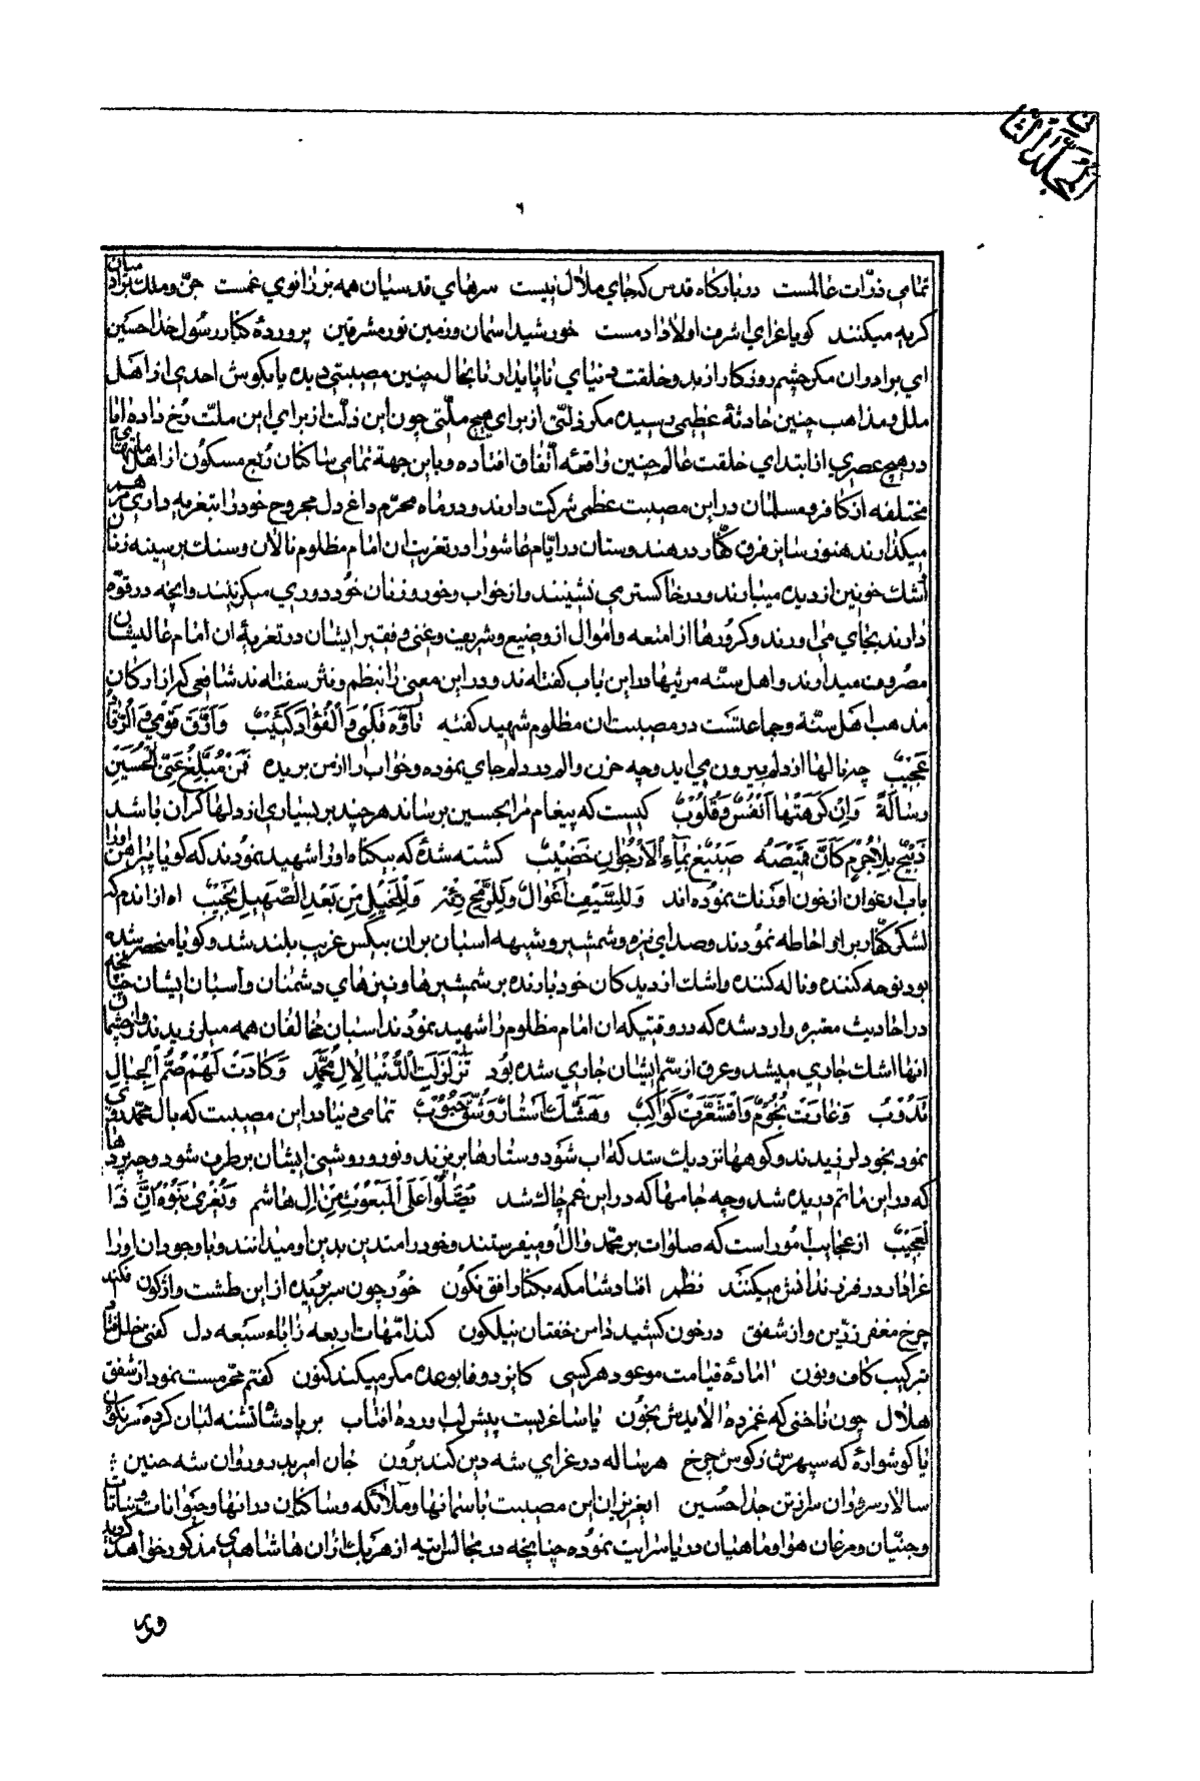 المجلد الثاني
۶
تمامی ذرّات عالمست دربارگاه قدس که جای ملال نیست سرهای قدسیان همه بر زانوی غمست جنّ و ملک بر آدمیان
گریه میکنند گویا عزای اشرف اولاد آدمست خورشید اسمان و زمین نور مشرقین پروردهٔ کنار رسول خدا حسین
ای برادران مگر چشم روزکار از بدو خلقت دنیای ناپایدار تا بحال چنین مصیبتی دیده یا بکوش احدی از اهل
ملل و مذاهب چنین حادثهٔ عظمی رسیده مگر ذلّتی از برای هیچ ملّتی چون این ذلّت از برای این ملّت رخ داده ایا
در هیچ عصری از ابتدای خلقت عالم چنین واقعه اتّفاق افتاده و باین جهة تمامی ساکنان ربع مسکون از اهل ملتهای
مختلفه از کافر و مسلمان در این مصیبت عظمی شرکت دارند و در ماه محرّم داغ دل مجروح خود را بتعزیه داری مرهم
میکذارند هنوز سایر فرق کفّار در هندوستان در ایّام عاشورا در تعزیت ان امام مظلوم نالان و سنک بر سینه زنان
اشک خونین از دیده میبارند و در خاکستر می نشینند و از خواب و خور و زنان خود دوری میکزینند و انچه در قوّه
دارند بجای می اورند و کرورها از امتعه و اموال از وضیع و شریف و غنی و فقیر ایشان در تعزیهٔ ان امام عالیشان
مصروف میدارند و اهل سنّه مرثیها در این باب کفته اند و در این معنی را بنظم و نثر سفته اند شافعی که از ارکان
مذهب اهل سنّة و جماعتست در مصیبت ان مظلوم شهید کفته تَأَوَّهَ قَلْبی وَ الْفُؤادُ کَئیبٌ وَ اَرَّقَ نَوْمی وَ الرُّقادُ
عَجیبٌ چه نالها از دلم بیرون می اید و چه حزن و الم در دلم جای نموده و خواب را از من بریده فَمَنْ مُبَلِّغٌ عَنِّی الْحُسَیْنَ
رِسالَةً وَ اِنْ کَرِهَتْها اَنْفُسٌ وَ قُلُوبٌ کیست که پیغام مرا بحسین برساند هر چند بر بسیاری از دلها کران باشد
ذَبیحٌ بِلا جُرْمٍ کَاَنَّ قَمیصَهُ صَبیغٌ بِمآءِ الْاَرْجُوانِ خَضیبٌ کشته شدهٔ که بیکناه او را شهید نمودند که کویا پیراهن او را
باب ارغوان از خون او رنک نموده اند وَ لِلسَّیْفِ اِعْوالٌ وَ لِلرُّمْحِ رَنَّةٌ وَ لِلْخَیْلِ مِنْ بَعْدِ الصَّهیلِ نَحیبٌ اه از اندم که
لشکر کفّار بر او احاطه نمودند و صدای نیزه و شمشیر و شیهه اسبان بر ان بیکس غریب بلند شد و کویا منحصر شده
بود نوحه کننده و ناله کننده و اشک از دیدکان خود بارنده بر شمشیرها و نیزهای دشمنان و اسبان ایشان چنانچه
در احادیث معتبره وارد شده که در وقتیکه ان امام مظلوم را شهید نمودند اسبان مخالفان همه میلرزیدند و از چشمان
انها اشک جاری میشد و عرق از سم ایشان جاری شده بود تَزَلْزَلَتِ الدُّنْیا لِآلِ مُحَمَّدٍ وَ کادَتْ لَهُمْ صُمُّ الْجِبالِ
تَذُوبُ وَ غارَتْ نُجُومٌ وَ اقْشَعَرَّتْ کَواکِبٌ وَ هُتِّکَ اَسْتارٌ وَ شُقَّ جُیُوبٌ تمامی دنیا در این مصیبت که بال محمّد روی
نمود بخود لرزیدند و کوهها نزدیک شد که اب شود و ستارها بریزند و نور و روشنی ایشان بر طرف شود و چه پردها
که در این ماتم دریده شد و چه جامها که در این غم چاک شد یُصَلّوُا عَلَی الْمَبْعُوثِ مِنْ الِ هاشِمٍ وَ یُغْزی بَنُوهُ اِنَّ ذا
لَعَجیبٌ از عجایب امور است که صلوات بر محمّد و ال او میفرستند و خود را متدین بدین او میدانند و با وجود ان او را
عزادار در فرزندانش میکنند نظم افتاد شامکه بکنار افق نکون خور چون سر بریده از این طشت واژکون فکند
چرخ مغفر زرّین و از شفق درخون کشید دامن خفتان نیلکون کند امّهات اربعه ز اباء سبعه دل کفتی خلل فتاد
بترکیب کاف و نون امادهٔ قیامت موعود هر کسی کایزد وفا بوعده مکر میکند کنون کفتم محرمست نمود از شفق
هلال چون ناخنی که غمزده الایدش بخون یا ساغریست پیش لب اورده افتاب بر یاد شاه تشنه لبان کرده سرنکون
یا کوشوارهٔ که سپهرش زکوش چرخ هر ساله در عزای شه دین کند برون جان امیر بدر و روان شه حنین
سالار سروران سر از تن جدا حسین ایعزیزان این مصیبت باسمانها و ملائکه و ساکنان در انها و حیوانات و نباتات
و جنّیان و مرغان هوا و ماهیان دریا سرایت نموده چنانچه در مجالس اتیه از هر یک از ان ها شاهدی مذکور خواهد کردید